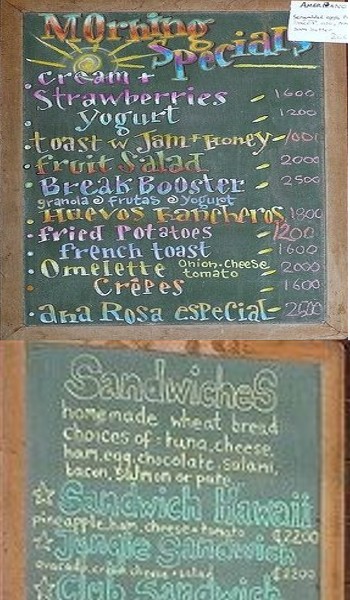 Morning
Specials
Cream +
Strawberries - 1600
Yogurt - 1200
toast w Jam + Honey - 1001
fruit Salad - 2000
Break Booster - 2500
granola @ frutas @ yogurt
Huevos Rancheros 1800
fried Potatoes - 1200
french toast - 1600
Omelette Onion-Cheese tomato - 2000
Crêpes - 1600
ana Rosa especial - 2500
Sandwiches
homemade wheat bread
choices of: tuna, cheese,
ham, egg, chocolate, salami,
bacon, salmon or pate
☆ Sandwich Hawaii
pineapple, ham, cheese + tomato ₡2200
☆ Jungle Sandwich
avocado, cream cheese + salad ₡2200
☆ Club Sandwich